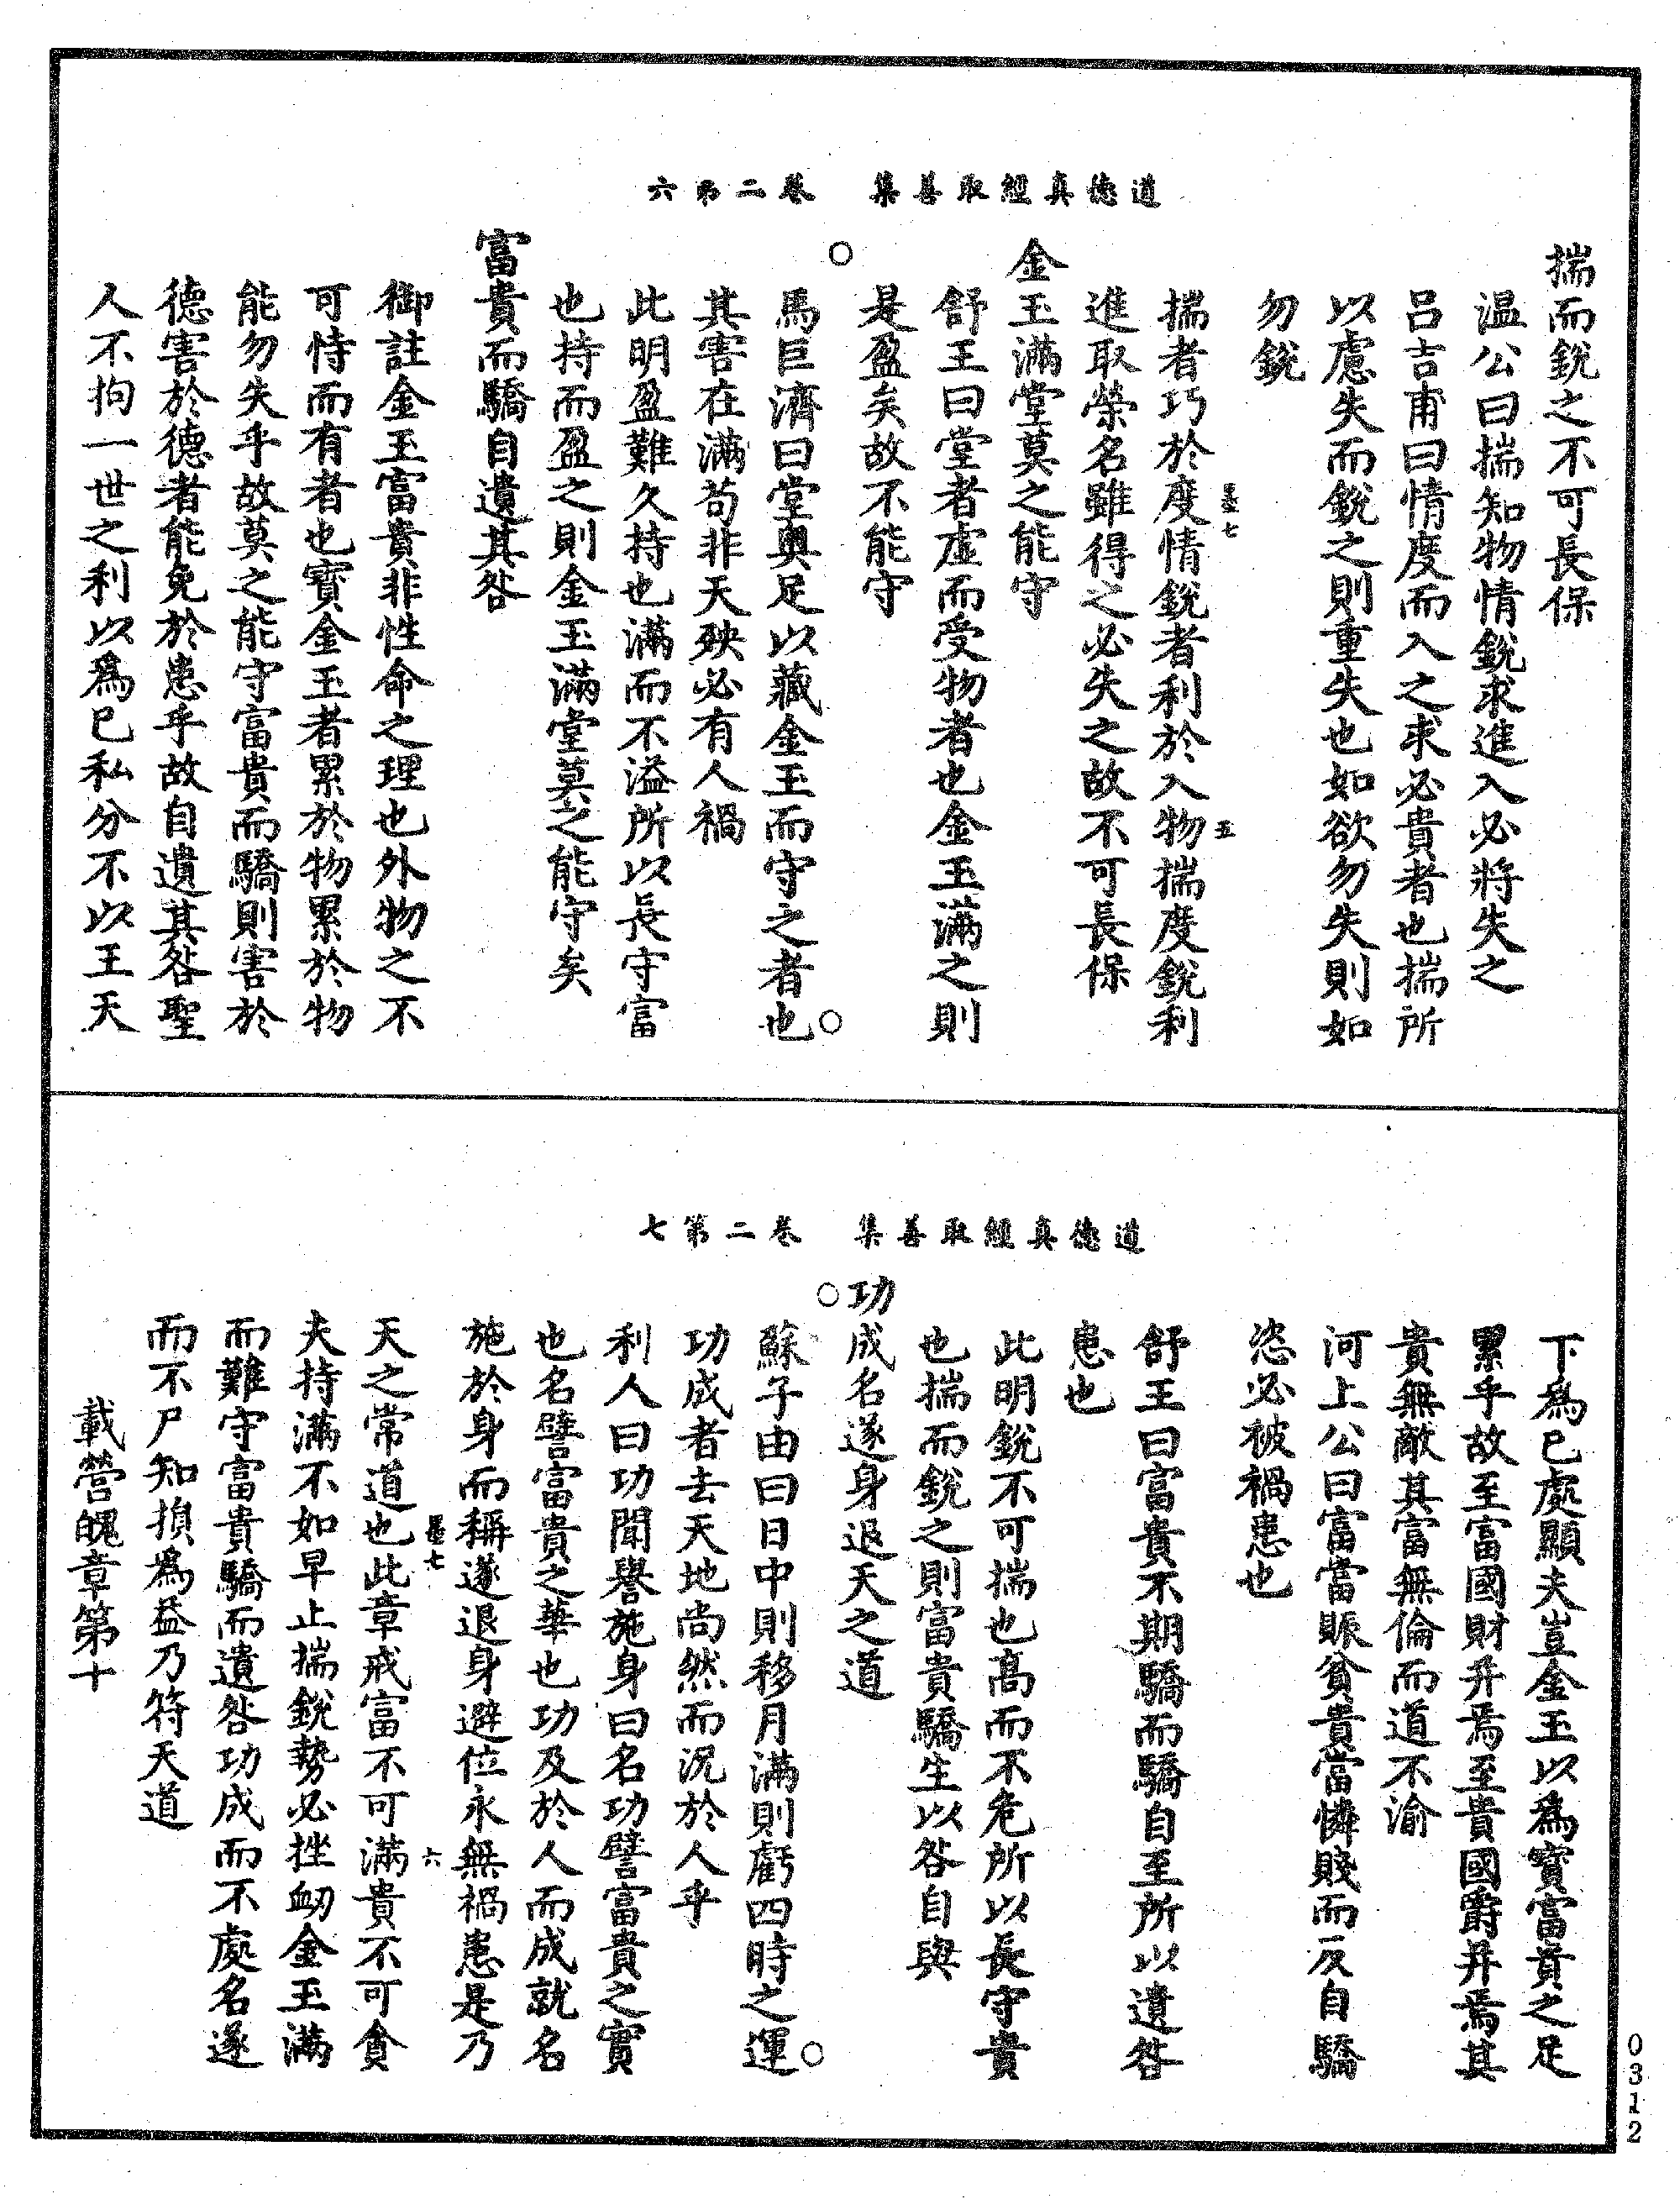 道德真經取善集　卷二第六
揣而銳之不可長保
温公曰揣知物情銳求進入必將失之
吕吉甫曰情度而入之求必貴者也揣所
以慮失而銳之則重失也如欲勿失則如
勿銳
墨七　五
揣者巧於度情銳者利於入物揣度銳利
進取榮名雖得之必失之故不可長保
金玉滿堂莫之能守
舒王曰堂者虛而受物者也金玉滿之則
是盈矣故不能守
馬巨濟曰堂奥足以藏金玉而守之者也
其害在滿苟非天殃必有人禍
此明盈難久持也滿而不溢所以長守富
也持而盈之則金玉滿堂莫之能守矣
富貴而驕自遺其咎
御註金玉富貴非性命之理也外物之不
可恃而有者也寳金玉者累於物累於物
能勿失乎故莫之能守富貴而驕則害於
德害於德者能免於患乎故自遺其咎聖
人不拘一世之利以爲已私分不以王天
道德真經取善集　卷二第七
下爲已處顯夫豈金玉以爲寳富貴之足
累乎故至富國財并焉至貴國爵并焉其
貴無敵其富無倫而道不渝
河上公曰富當賑貧貴當憐賤而反自驕
恣必被禍患也
舒王曰富貴不期驕而驕自至所以遺咎
患也
此明銳不可揣也高而不危所以長守貴
也揣而銳之則富貴驕生以咎自與
功成名遂身退天之道
蘇子由曰日中則移月滿則虧四時之運
功成者去天地尚然而況於人乎
利人曰功聞譽施身曰名功譬富貴之實
也名譬富貴之華也功及於人而成就名
施於身而稱遂退身避位永無禍患是乃
墨七　六
天之常道也此章戒富不可滿貴不可貪
夫持滿不如早止揣銳勢必挫衂金玉滿
而難守富貴驕而遺咎功成而不處名遂
而不尸知損爲益乃符天道
載營魄章第十
0312